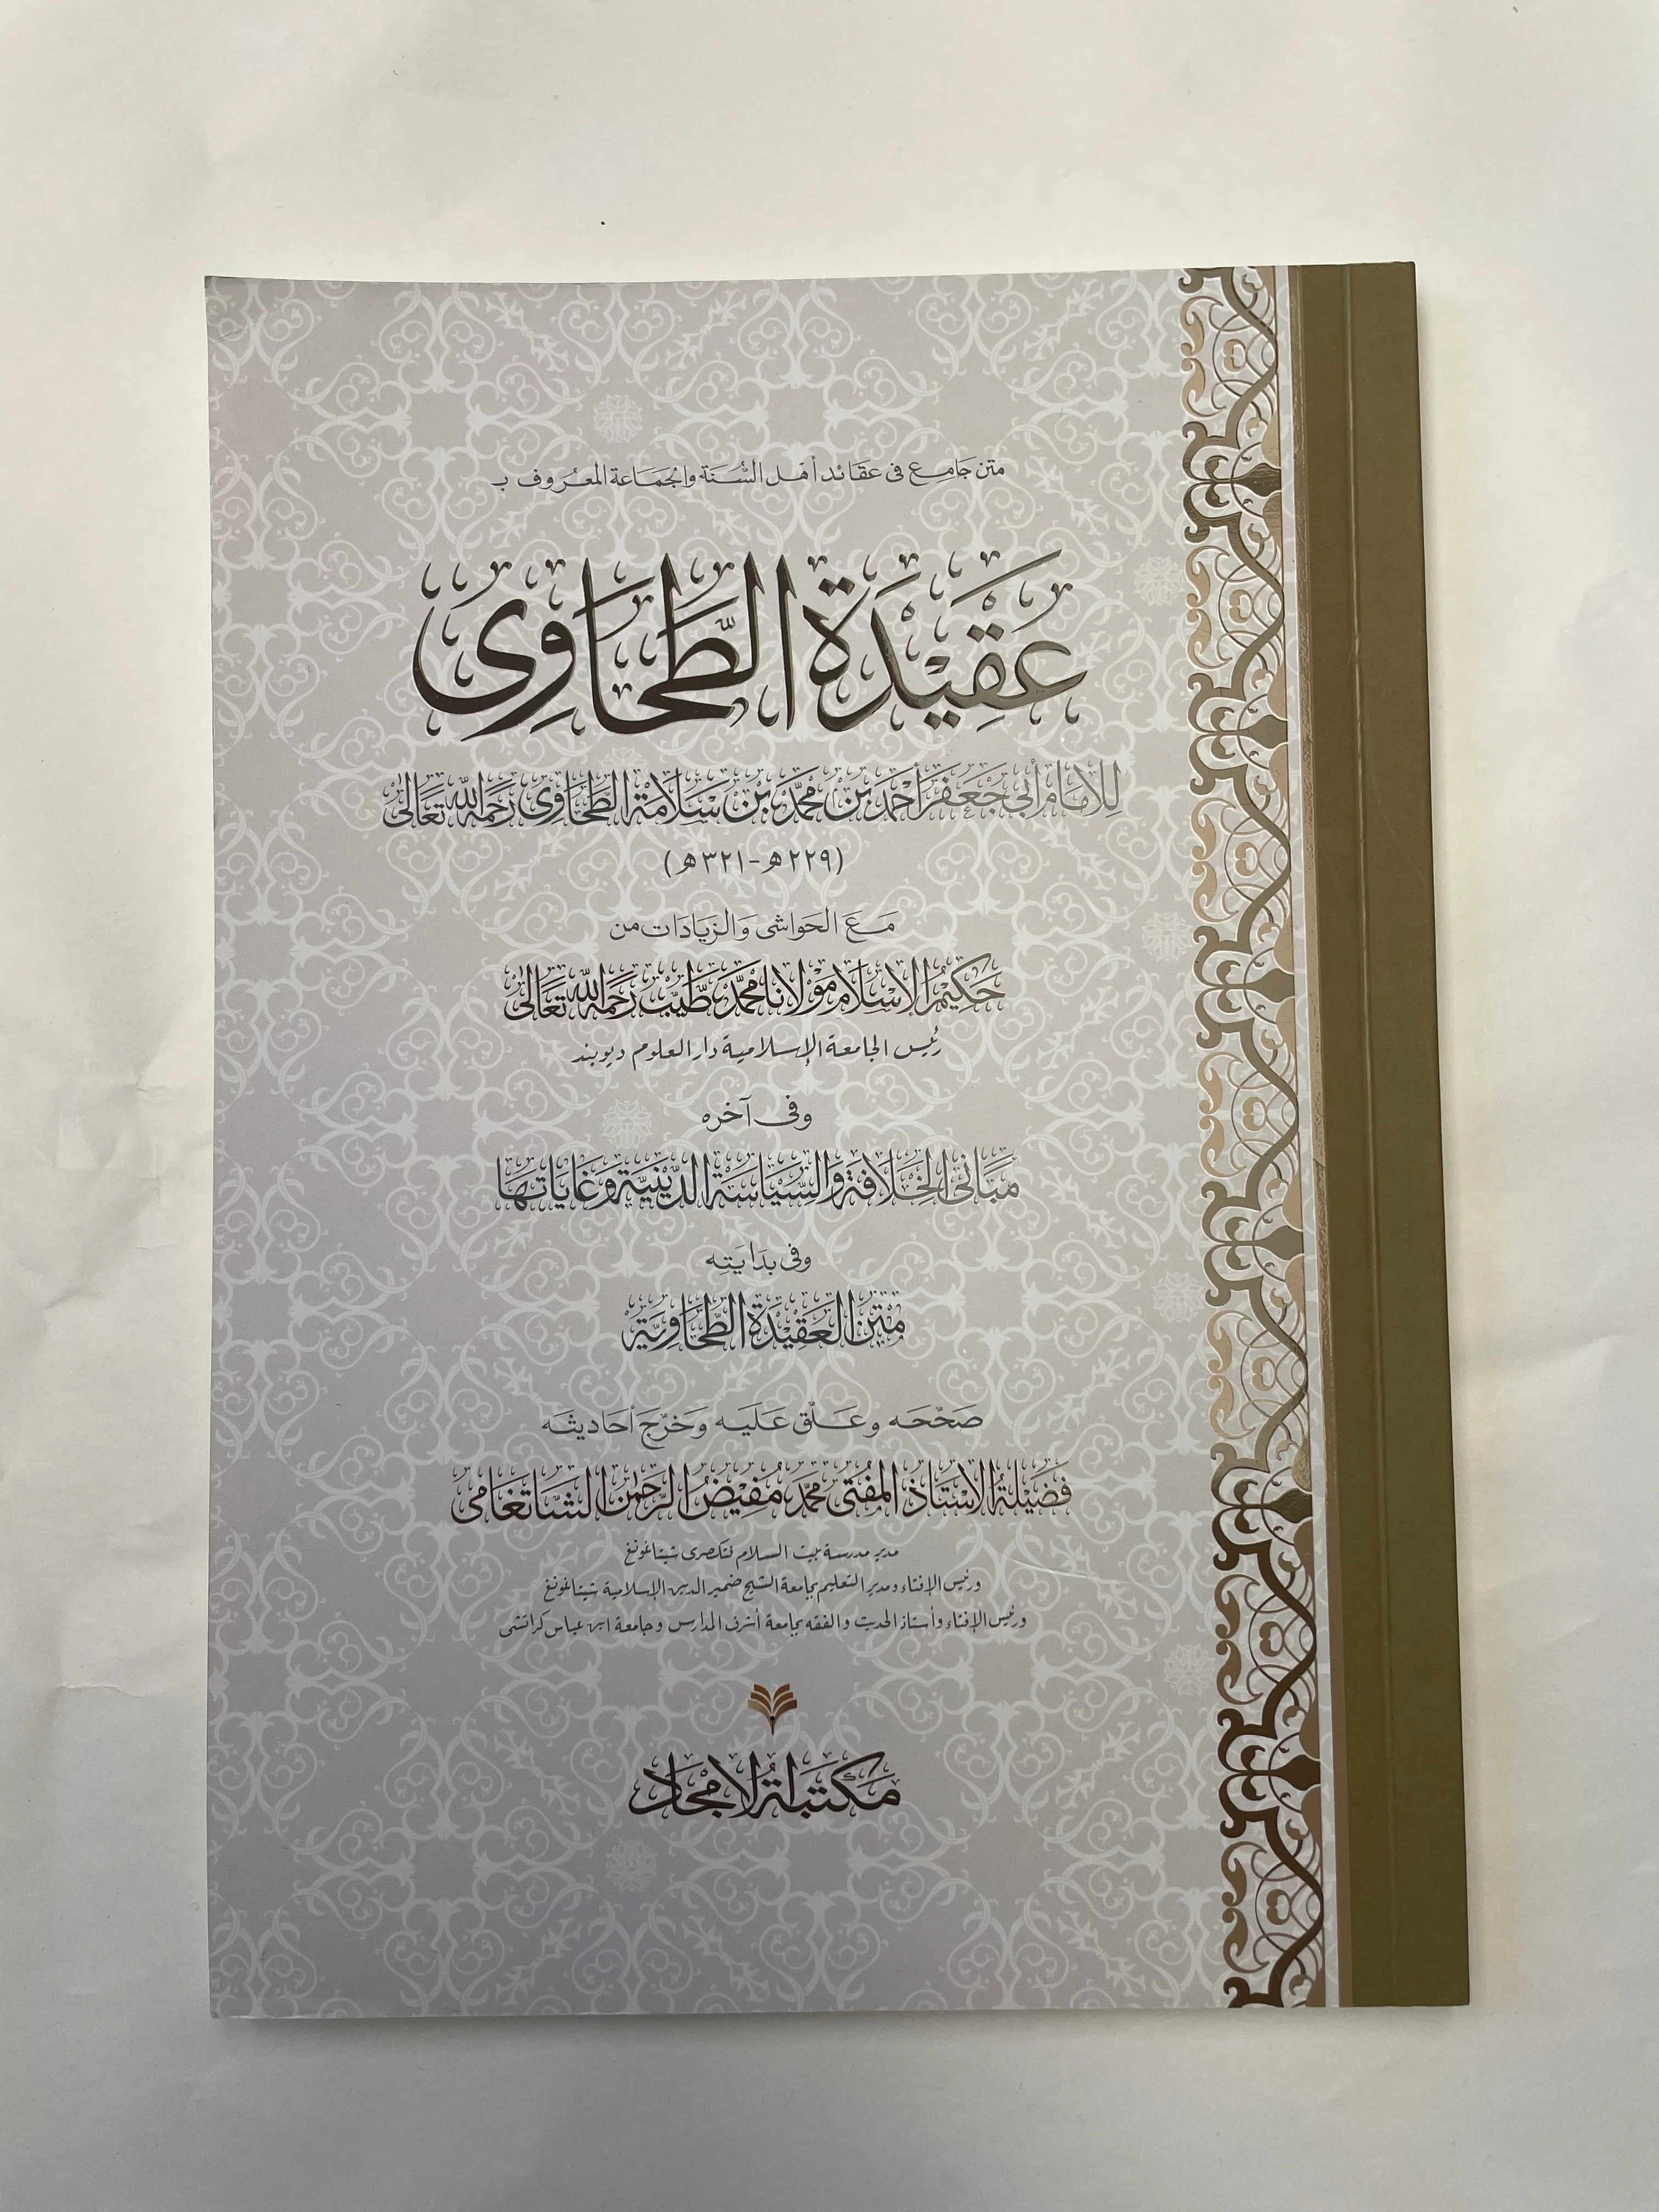 متن جامع فی عقائد أهل السُّنة والجماعة المعروف بـ
عَقِيْدَةُ الطَّحَاوِی
لِلإمَام أبي جَعفَر أحْمَد بن مُحمَّد بْن سَلامَة الطَّحَاوِی رَحِمَهُ اللّٰه تَعَالیٰ
(٢٢٩هـ-٣٢١هـ)
مَعَ الحَواشی وَالزيَادَات من
حَكِيمُ الإسْلَام مَوْلَانا مُحمَّد طَيِّبْ رَحِمَهُ اللّٰه تَعَالیٰ
رئيس الجامعة الإسلامية دار العلوم ديوبند
وفی آخره
مَبَانی الخِلَافَة وَالسِّيَاسَة الدِّينِيَّة وَغَايَاتهَا
وفی بدَايَتِه
مَتْنُ العَقِيْدَة الطَّحَاوِيَّة
صَحَّحَه وعَلَّق عَلَيه وَخرّجَ أحَاديثَه
فَضِيْلَةُ الاسْتَاذ المُفْتی مُحمَّد مُفِيْضُ الرَّحمٰن الشَّاتغَامی
مدير مدرسة بيت السلام شيتاغونغ
ورئيس الإفتاء ومدير التعليم بجامعة الشيخ ضمير الدين الإسلامية شيتاغونغ
ورئيس الإفتاء وأستاذ الحديث والفقه بجامعة أشرف المدارس وجامعة ابن عباس كراتشی
مَكْتَبَةُ الامْجَاد